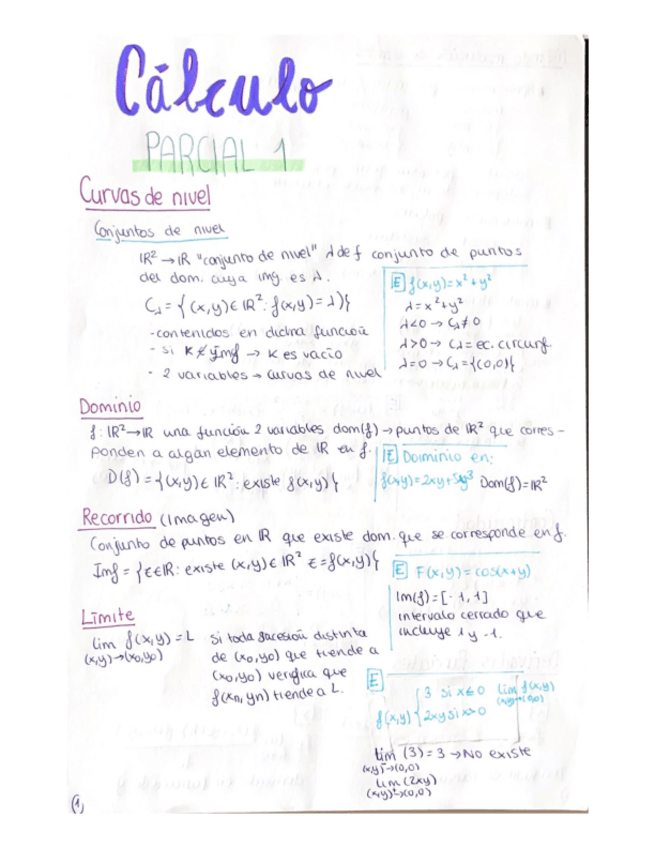 Cálculo
PARCIAL 1
Curvas de nivel
Conjuntos de nivel
IR² → IR "conjunto de nivel" λ de f conjunto de puntos
del dom. cuya img es λ.
Cλ = {(x,y) ∈ IR² : f(x,y) = λ}
- contenidos en dicha función
- si K ∉ Imf → K es vacío
- 2 variables → curvas de nivel
E f(x,y) = x² + y²
λ = x² + y²
λ<0 → Cλ ≠ 0
λ>0 → Cλ = ec. circunf.
λ=0 → Cλ = {(0,0)}
Dominio
f: IR² → IR una función 2 variables dom(f) → puntos de IR² que corres-
ponden a algún elemento de IR en f.
D(f) = {(x,y) ∈ IR² : existe f(x,y)}
E Dominio en:
f(x,y) = 2xy + 5xy³ Dom(f) = IR²
Recorrido (Imagen)
Conjunto de puntos en IR que existe dom. que se corresponde en f.
Imf = {z ∈ IR : existe (x,y) ∈ IR² z = f(x,y)}
E F(x,y) = cos(x+y)
Im(f) = [-1,1]
intervalo cerrado que
incluye 1 y -1.
Límite
lim f(x,y) = L
(x,y)→(x₀,y₀)
si toda sucesión distinta
de (x₀,y₀) que tiende a
(x₀,y₀) verifica que
f(xn,yn) tiende a L.
E
f(x,y) { 3 si x≤0
2xy si x>0
lim f(x,y)
(x,y)→(0,0)
lim (3) = 3 → No existe
(x,y)→(0,0)
lim (2xy)
(x,y)→(0,0)
1